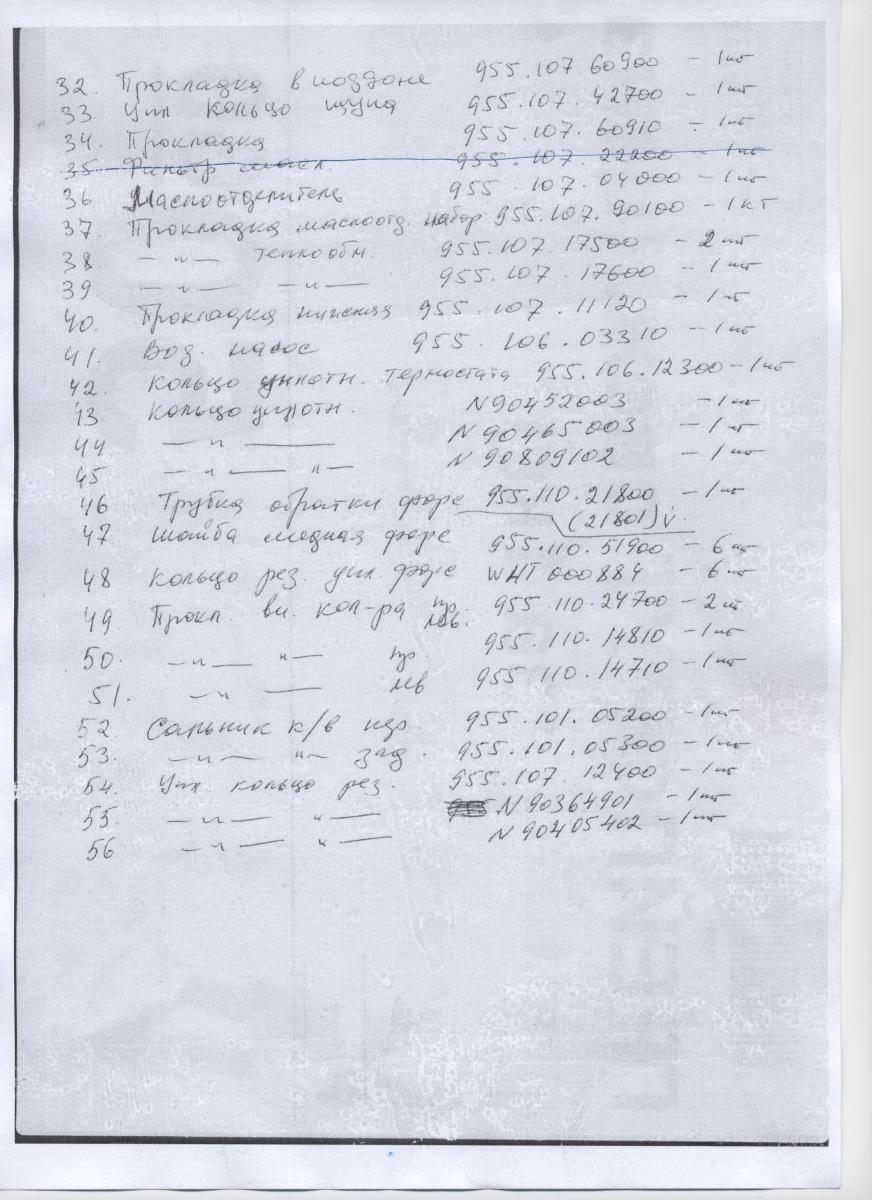 32. Прокладка в поддоне 955.107 60900 - 1 шт
33. Упл. кольцо щупа 955.107.42700 - 1 шт
34. Прокладка 955.107.60910 - 1 шт
35 Фильтр масл. 955.107.22200 - 1 шт
36. Маслоотделитель 955.107.04000 - 1 шт
37. Прокладка маслоотд. набор 955.107.90100 - 1 кт
38 — " — теплообн. 955.107.17500 - 2 шт
39 — " — — " — 955.107.17600 - 1 шт
40. Прокладка нижняя 955.107.11120 - 1 шт
41. Вод. насос 955.106.03310 - 1 шт
42. Кольцо уплотн. термостата 955.106.12300 - 1 шт
43 Кольцо уплотн. N90452003 - 1 шт
44 — " — N 90465003 - 1 шт
45 — " — " — N 90809102 - 1 шт
46 Трубка обратки форс 955.110.21800 - 1 шт
(21801) v
47 Шайба медная форс 955.110.51900 - 6 шт
48 Кольцо рез. упл. форс WHT 000884 - 6 шт
49 Прокл. вп. кол-ра пр. лев. 955.110.24700 - 2 шт
50. — " — " — пр 955.110.14810 - 1 шт
51. — " — лев 955.110.14710 - 1 шт
52. Сальник к/в пер. 955.101.05200 - 1 шт
53. — " — " — зад. 955.101.05300 - 1 шт
54. Упл. кольцо рез. 955.107.12400 - 1 шт
55. — " — " — N 90364901 - 1 шт
56 — " — " — N 90405402 - 1 шт